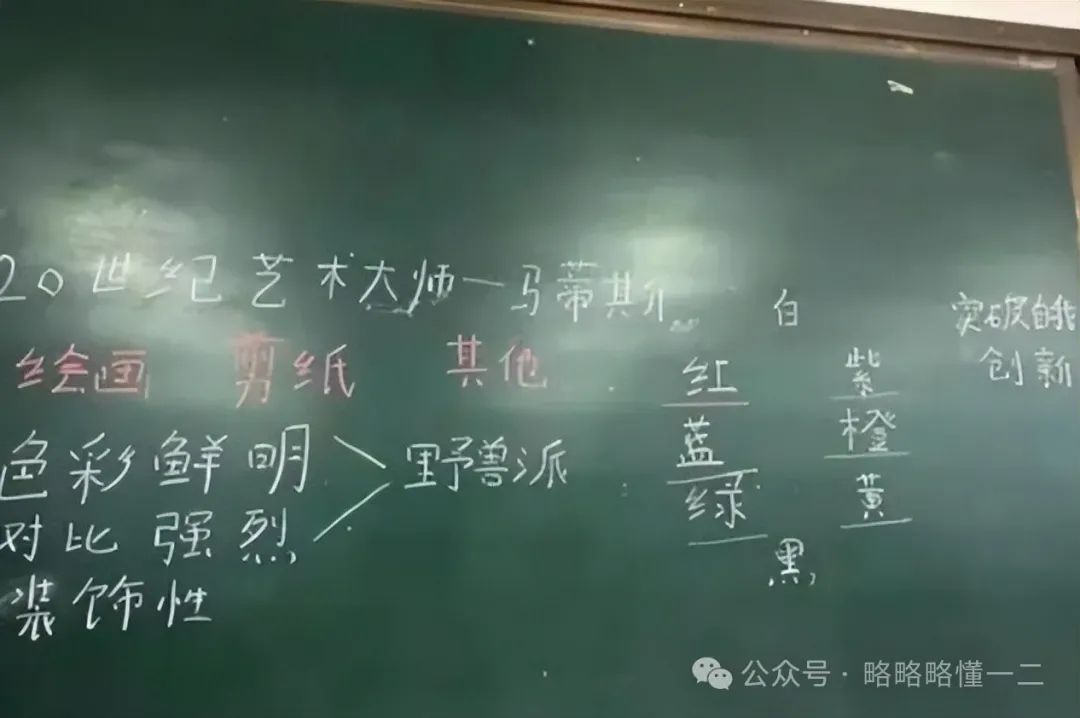 20世纪艺术大师一马蒂斯
绘画 剪纸 其他
色彩鲜明
对比强烈
野兽派
装饰性
白
红 紫
蓝 橙
绿 黄
黑
突破自我
创新
公众号·略略略懂一二